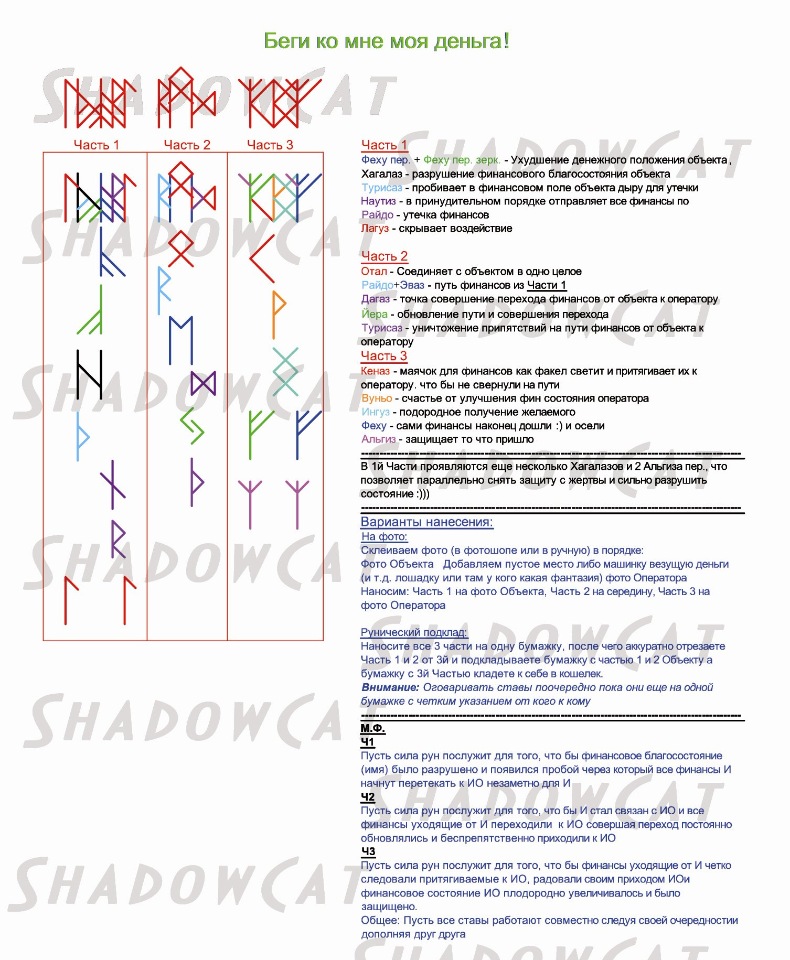 Беги ко мне моя деньга!
SHADOWCAT
SHADOWCAT
SHADOWCAT
SHADOWCAT
SHADOWCAT
SHADOWCAT
SHADOWCAT
SHADOWCAT
SHADOWCAT
SHADOWCAT
SHADOWCAT
SHADOWCAT
Часть 1
Часть 2
Часть 3
Часть 1
Феху пер. + Феху пер. зерк. - Ухудшение денежного положения объекта ,
Хагалаз - разрушение финансового благосостояния объекта
Турисаз - пробивает в финансовом поле объекта дыру для утечки
Наутиз - в принудительном порядке отправляет все финансы по
Райдо - утечка финансов
Лагуз - скрывает воздействие
Часть 2
Отал - Соединяет с объектом в одно целое
Райдо+Эваз - путь финансов из Части 1
Дагаз - точка совершение перехода финансов от объекта к оператору
Йера - обновление пути и совершения перехода
Турисаз - уничтожение припятствий на пути финансов от объекта к
оператору
Часть 3
Кеназ - маячок для финансов как факел светит и притягивает их к
оператору. что бы не свернули на пути
Вуньо - счастье от улучшения фин состояния оператора
Ингуз - подородное получение желаемого
Феху - сами финансы наконец дошли :) и осели
Альгиз - защищает то что пришло
В 1й Части проявляются еще несколько Хагалазов и 2 Альгиза пер., что
позволяет параллельно снять защиту с жертвы и сильно разрушить
состояние :)))
Варианты нанесения:
На фото:
Склеиваем фото (в фотошопе или в ручную) в порядке:
Фото Объекта Добавляем пустое место либо машинку везущую деньги
(и т.д. лошадку или там у кого какая фантазия) фото Оператора
Наносим: Часть 1 на фото Объекта, Часть 2 на середину, Часть 3 на
фото Оператора
Рунический подклад:
Наносите все 3 части на одну бумажку, после чего аккуратно отрезаете
Часть 1 и 2 от 3й и подкладываете бумажку с частью 1 и 2 Объекту а
бумажку с 3й Частью кладете к себе в кошелек.
Внимание: Оговаривать ставы поочередно пока они еще на одной
бумажке с четким указанием от кого к кому
М.Ф.
Ч1
Пусть сила рун послужит для того, что бы финансовое благосостояние
(имя) было разрушено и появился пробой через который все финансы И
начнут перетекать к ИО незаметно для И
Ч2
Пусть сила рун послужит для того, что бы И стал связан с ИО и все
финансы уходящие от И переходили к ИО совершая переход постоянно
обновлялись и беспрепятственно приходили к ИО
Ч3
Пусть сила рун послужит для того, что бы финансы уходящие от И четко
следовали притягиваемые к ИО, радовали своим приходом ИОи
финансовое состояние ИО плодородно увеличивалось и было
защищено.
Общее: Пусть все ставы работают совместно следуя своей очередности
дополняя друг друга